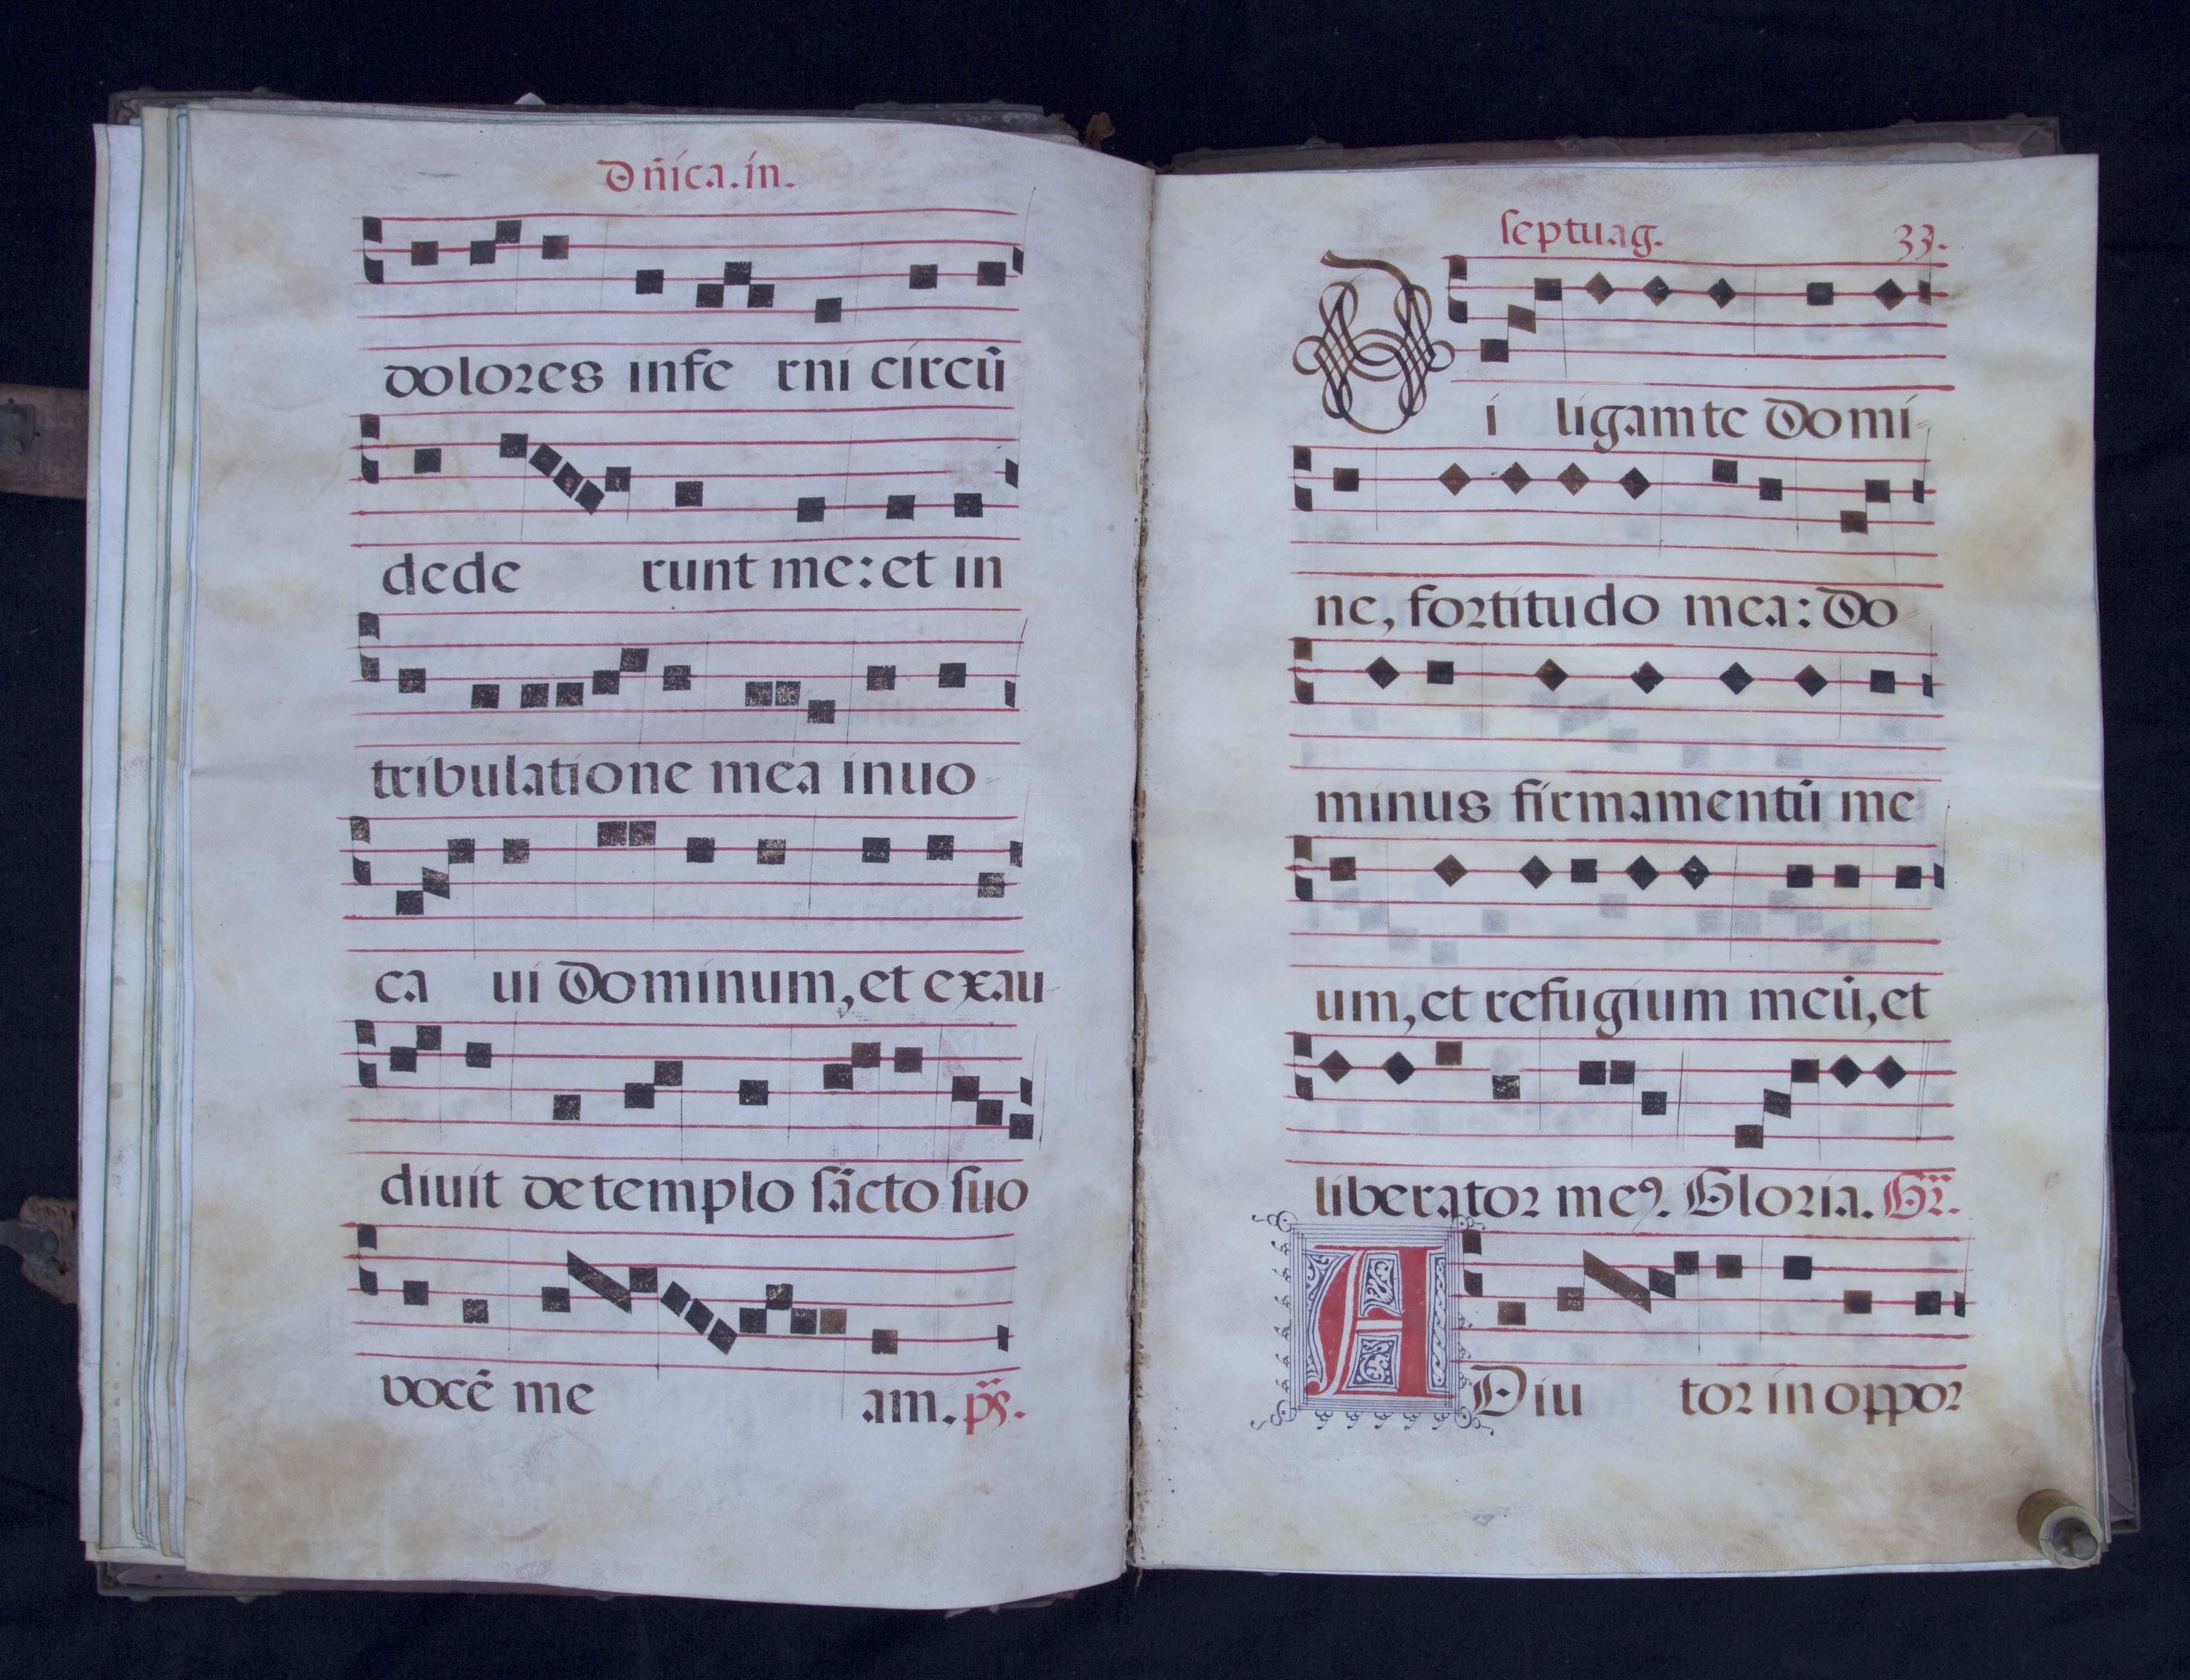 Dñica.in.
dolores infe rni circũ
dede runt me: et in
tribulatione mea inuo-
ca ui Dominum, et exau
diuit de templo sãcto suo
vocẽ me am. ps.
septuag. 33.
Di ligam te Domi-
ne, fortitudo mea: Do-
minus firmamentũ me
um, et refugium meũ, et
liberator meꝰ. Gloria. Gr.
A Diu tor in oppor